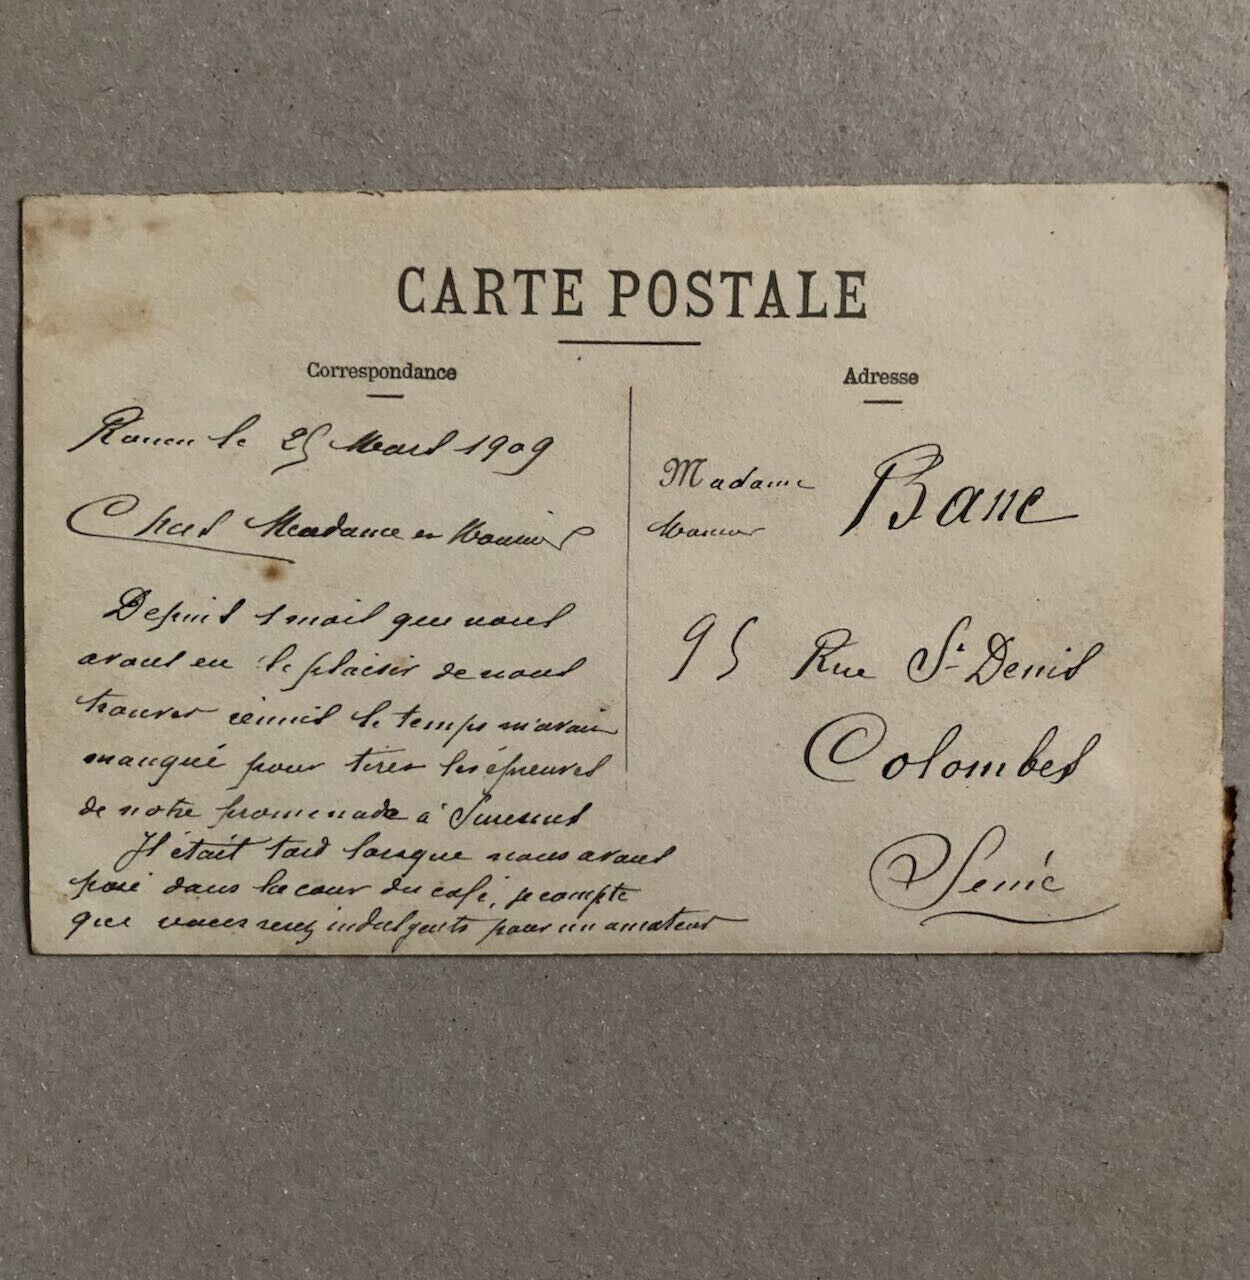 CARTE POSTALE
Correspondance
Rouen le 25 Mars 1909
Chers Madame et Monsieur
Depuis 1 mois que nous
avons eu le plaisir de nous
trouver réunis le temps m'avait
manqué pour tirer les épreuves
de notre promenade à Suresnes
Il était tard lorsque nous avons
posé dans la cour du café, je compte
que vous serez indulgents pour un amateur
Adresse
Madame Banc
Monsieur
95 Rue St Denis
Colombes
Seine